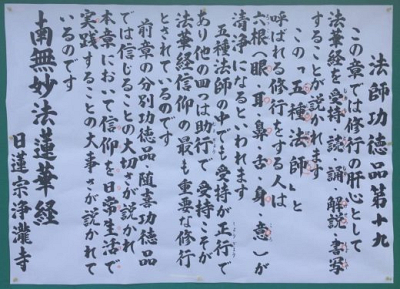 法師功徳品第十九
この章では修行の肝心として
法華経を受持・読・誦・解説・書写
することが説かれます
この〝五種法師〟と
呼ばれる修行をする人は
六根（眼・耳・鼻・舌・身・意）が
清浄になるといわれます
五種法師の中でも受持が正行で
あり他の四つは助行で 受持こそが
法華経信仰の最も重要な修行
とされているのです
前章の分別功徳品 随喜功徳品
では信じることの大切さが説かれ
本章において信仰を日常生活で
実践することの大事さが説かれて
いるのです
南無妙法蓮華経
日蓮宗浄瀧寺